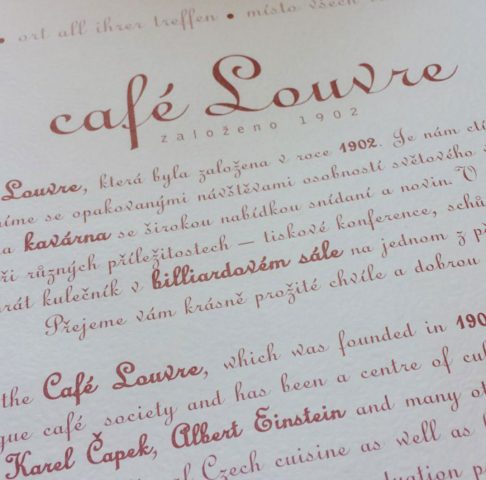 • ort all ihrer treffen • místo všech
café Louvre
založeno 1902
Louvre, která byla založena v roce 1902. Je nám
se opakovanými návštěvami osobností světového
a kavárna se širokou nabídkou snídaní a novin. V
různých příležitostech – tiskové konference,
kulečník v billiardovém sále na jednom z
Přejeme vám krásně prožité chvíle a dobrou
the Café Louvre, which was founded in
café society and has been a centre of
Karel Čapek, Albert Einstein and many
Czech cuisine as well as